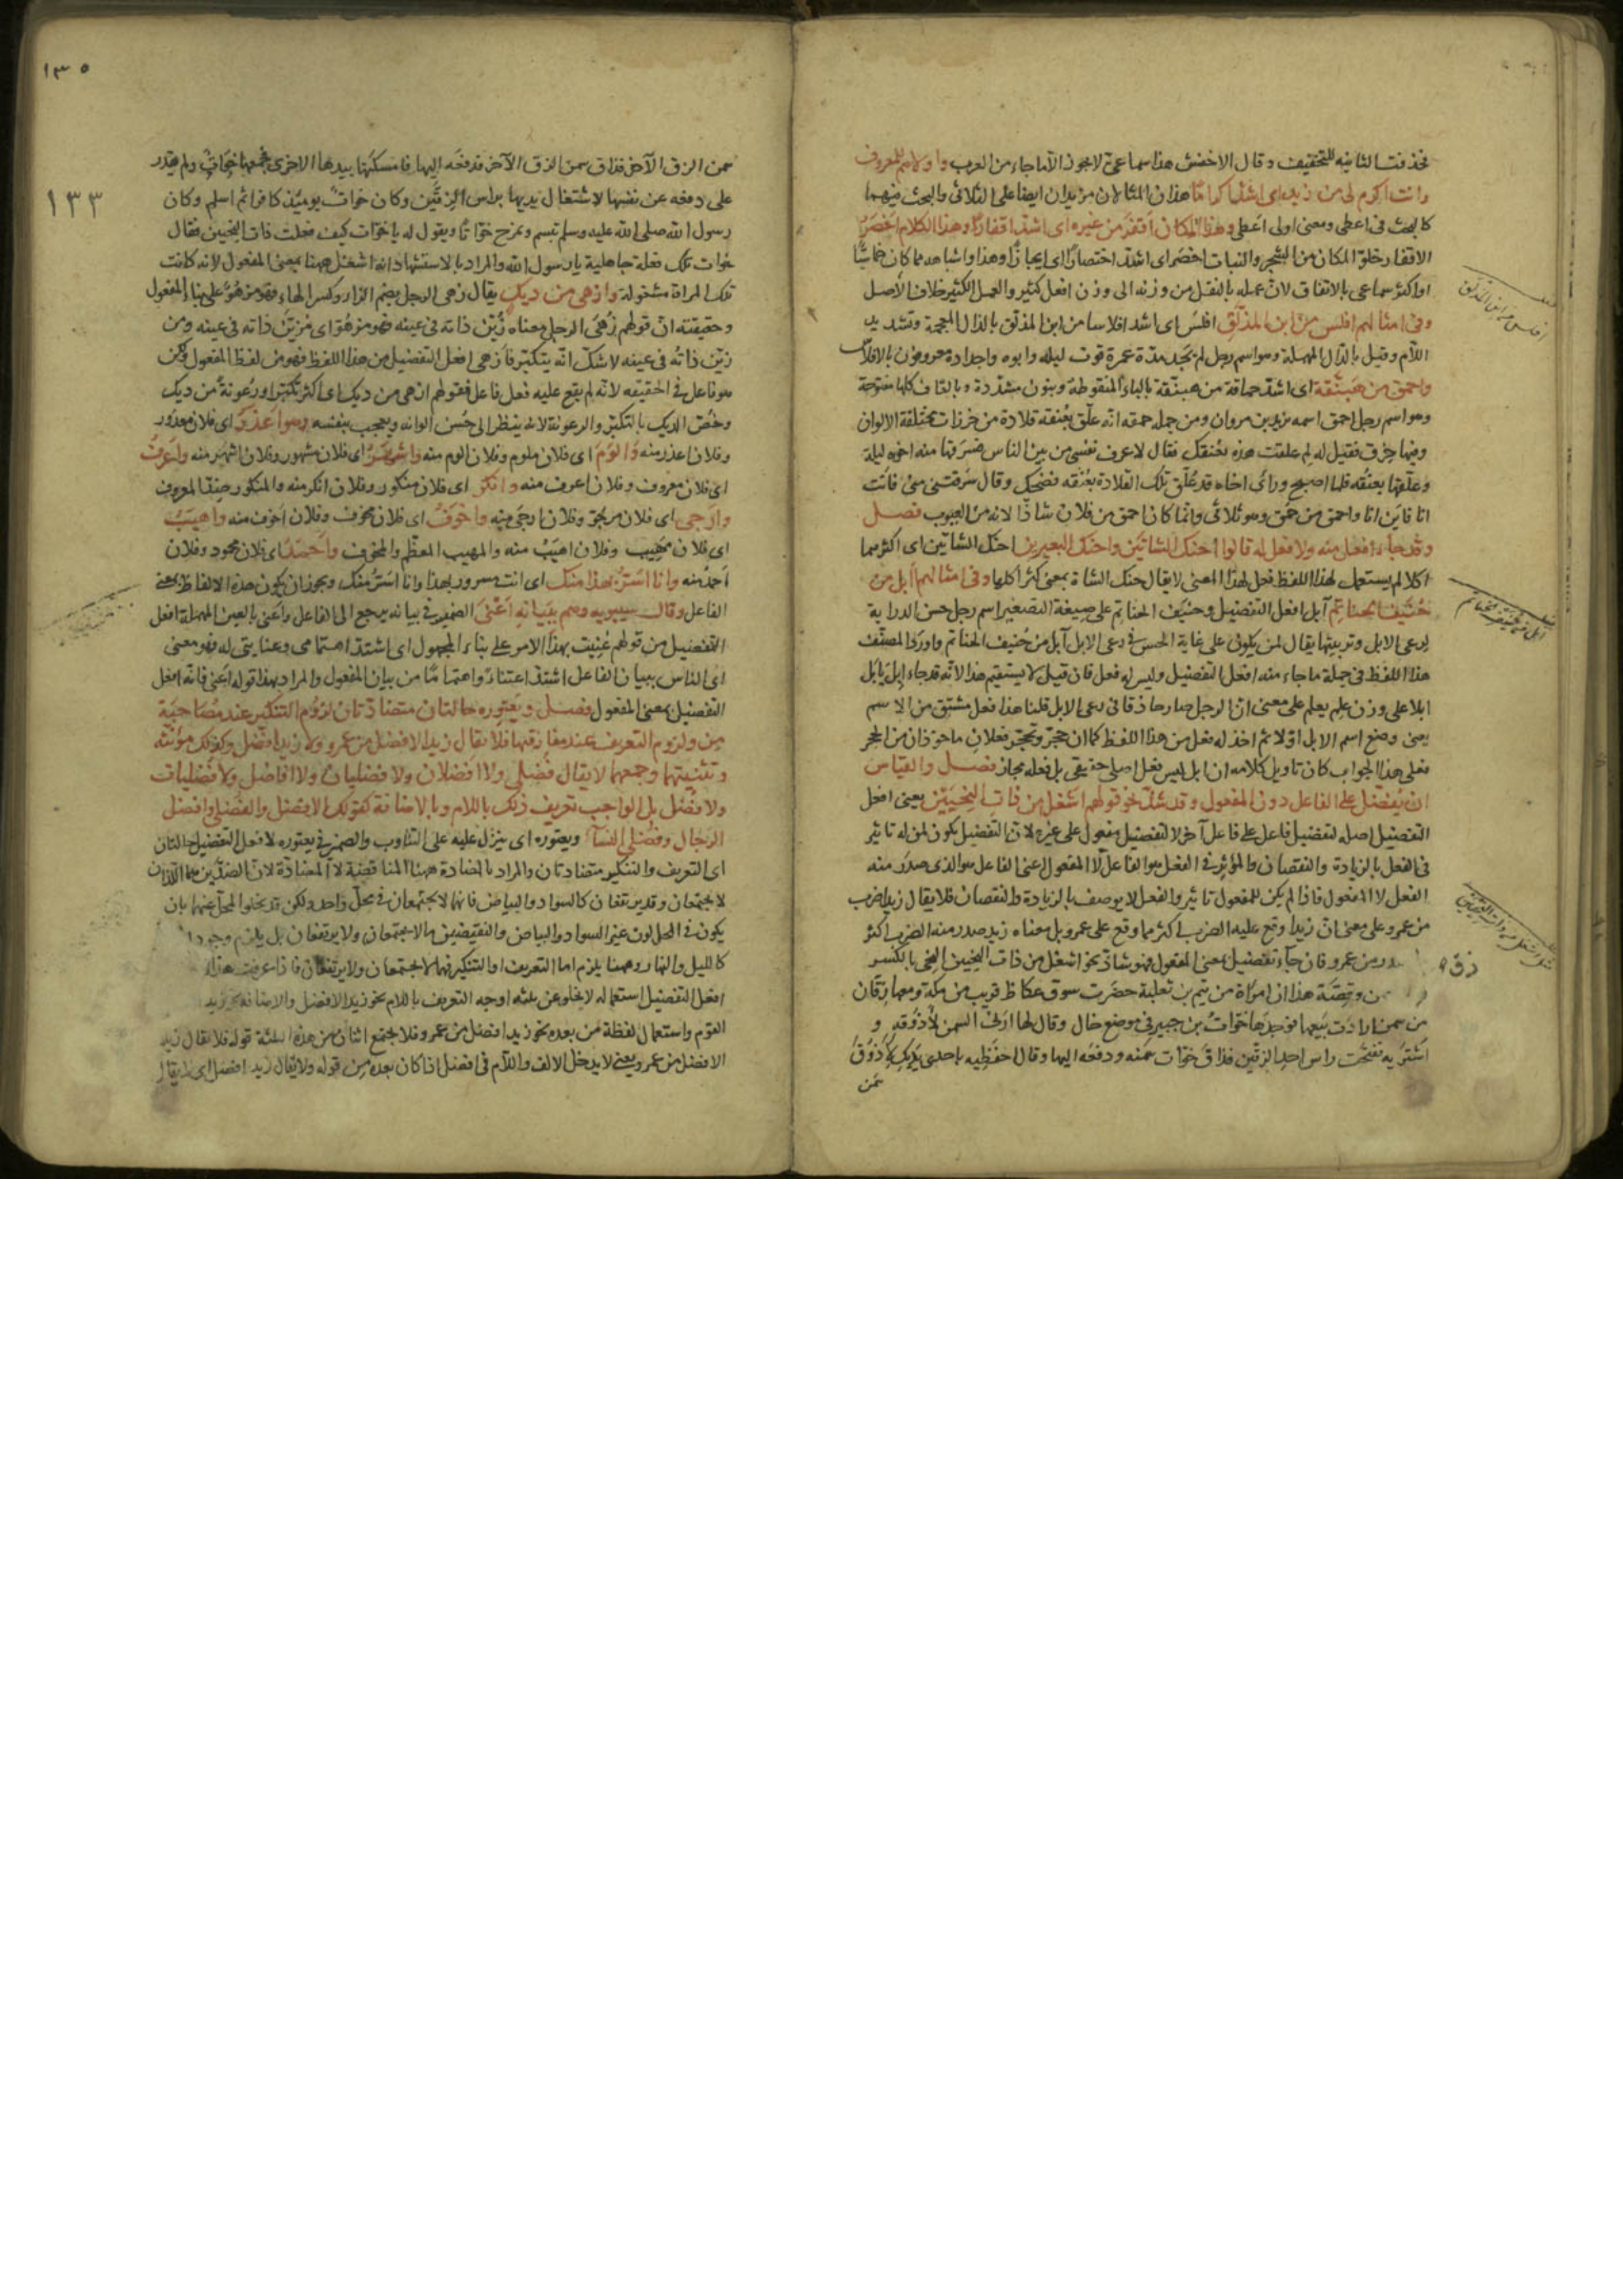 فحذفت الثانية للتخفيف وقال الاخفش هذا سماعي لا يجوز الا ما جاء من العرب واولاهم للمعروف
وانت اكرم لى من زيد اى اشد اكراما هذان المثالان مزيدان ايضا على الثلاثى والبحث فيهما
كالبحث فى اعطى ومعنى اولى اعطى وهذا المكان اقفر من غيره اى اشد اقفارا وهذا الكلام اخصر
الاقفار خلو المكان من الشجر والنبات اخصر اى اشد اختصارا اى ايجازا وهذا واشباهه مما كان خماسيا
او اكثر سماعى بالاتفاق لان عمله بالنقل من وزنه الى وزن افعل كثير والعمل الكثير خلاف الاصل
وفى امثالهم افلس من ابن المذلق افلس اى اشد افلاسا من ابن المذلق بالذال المعجمة وتشديد
اللام وقيل بالدال المهملة وهو اسم رجل لم يجد مدة عمرة قوت ليله وابوه واجداده معروفون بالافلاس
واحمق من هبنقة اى اشد حماقة من هبنقة بالباء المنقوطة وبنون مشددة وبالقاف كلها مفتوحة
وهو اسم رجل احمق اسمه يزيد بن مروان ومن جملة حمقه انه علق بعنقه قلادة من خرزات مختلفة الالوان
وفيها خزق فقيل له لم علقت هذه بعنقك فقال لاعرف نفسى من بين الناس فسرقها منه اخوه ليلة
وعلقها بعنقه فلما اصبح ورأى اخاه قد علق تلك القلادة بعنقه فضحك وقال سرقتنى منى فانت
انا فاين انا واحمق من حمق وهو ثلاثى وانما كان احمق من فلان شاذا لانه من العيوب فصل
وقد جاء افعل منه ولا فعل له قالوا احنك الشاتين واحنك البعيرين احنك الشاتين اى اكثرهما
اكلا لم يستعمل لهذا اللفظ فعل لهذا المعنى لا يقال حنك الشاة بمعنى كثر اكلها وفى امثالهم آبل من
حنيف الحناتم آبل افعل التفضيل وحنيف الحناتم على صيغة التصغير اسم رجل حسن الدراية
لرعى الابل وتربيتها يقال لمن يكون على غاية الحسن فى رعى الابل آبل من حنيف الحناتم واورد المصنف
هذا اللفظ فى جملة ما جاء منه افعل التفضيل وليس له فعل فان قيل لا يستقيم هذا لانه قد جاء ابل يابل
ابلا على وزن علم يعلم على معنى ان الرجل صار حاذقا فى رعى الابل قلنا هذا فعل مشتق من الاسم
يعنى وضع اسم الابل اولا ثم اخذ له فعل من هذا اللفظ كما ان حجر وتحجر فعلان ماخوذان من الحجر
فعلى هذا الجواب كان تاويل كلامه ان ابل ليس فعل اصلى حقيقى بل فعله مجاز فصل والقياس
ان يفضل على الفاعل دون المفعول وقد شذ نحو قولهم اشغل من ذات النحيين يعنى افعل
التفضيل اصله لتفضيل فاعل على فاعل آخر لا لتفضيل مفعول على غيره لان التفضيل يكون لمن له تاثير
فى الفعل بالزيادة والنقصان والمؤثر فى الفعل هو الفاعل لا المفعول اعنى الفاعل هو الذى صدر منه
الفعل لا المفعول فاذا لم يكن للمفعول تاثير والفعل لا يوصف بالزيادة والنقصان فلا يقال زيد اضرب
من عمرو على معنى ان زيدا وقع عليه الضرب اكثر مما وقع على عمرو بل معناه زيد صدر منه الضرب اكثر
من عمرو فان جاء تفضيل بمعنى المفعول فهو شاذ نحو اشغل من ذات النحيين النحى بالكسر
وقصة هذا ان امرأة من تيم بن ثعلبة حضرت سوق عكاظ قريب من مكة ومعها زقان
من سمن ارادت بيعهما فوجدها خوات بن جبير فى موضع خال وقال لها ارنى السمن لاذوقه و
اشتريه ففتحت راس احد الزقين فذاق خوات سمنه ودفعه اليها وقال احفظيه باحدى يديك لاذوق
سمن
افلس من ابن المذلق
آبل من حنيف الحناتم
زق
١٣٥
١٣٣
سمن الزق الآخر فذاق سمن الزق الآخر فدفعه اليها فامسكتها بيدها الاخرى فجمعها خوات ولم تقدر
على دفعه عن نفسها لاشتغال يديها براس الزقين وكان خوات يومئذ كافرا ثم اسلم وكان
رسول الله صلى الله عليه وسلم تبسم ويمزح خواتا ويقول له يا خوات كيف فعلت ذات النحيين فقال
خوات تلك فعلة جاهلية يا رسول الله والمراد بالاستشهاد انه اشغل ههنا بمعنى المفعول لانه كانت
تلك المراة مشغولة وازهى من ديك يقال زهى الرجل بضم الزاء وكسر الهاء فهو مزهو على بناء المفعول
وحقيقته ان قولهم زهى الرجل معناه زين ذاته فى عينه فهو مزهو اى مزين ذاته فى عينه ومن
زين ذاته فى عينه لا شك انه يتكبر فازهى افعل التفضيل من هذا اللفظ فهو من لفظ المفعول ولكن
هو فاعل فى الحقيقة لانه لم يقع عليه فعل فاعل فقولهم ازهى من ديك اى اكثر تكبرا ورعونة من ديك
وخص الديك بالتكبر والرعونة لانه ينظر الى حسن الوانه ويعجب بنفسه وهو اعذر اى فلان معذور
وفلان اعذر منه والوم اى فلان ملوم وفلان الوم منه واشهر اى فلان مشهور وفلان اشهر منه واعرف
اى فلان معروف وفلان اعرف منه وانكر اى فلان منكور وفلان انكر منه والمنكور ضد المعروف
وارجى اى فلان مرجو وفلان ارجى منه واخوف اى فلان مخوف وفلان اخوف منه واهيب
اى فلان مهيب وفلان اهيب منه والمهيب المعظم والمخوف واحمد اى فلان محمود وفلان
احمد منه وانا اسر بهذا منك اى انت مسرور بهذا وانا اسر منك ويجوز ان يكون هذه الالفاظ بمعنى
الفاعل وقال سيبويه وهم ببيانه اعنى الضمير فى بيانه يرجع الى الفاعل واعنى بالعين المهملة افعل
التفضيل من قولهم عنيت بهذا الامر على بناء المجهول اى اشتد اهتمامى وعنايتى له فهو معنى
اى الناس ببيان الفاعل اشد اعتناء واهتماما من بيان المفعول والمراد بهذا قوله اعنى فانه افعل
التفضيل بمعنى المفعول فصل ويعتوره حالتان متضادتان لزوم التنكير عند مصاحبة
من ولزوم التعريف عند مفارقتها فلا يقال زيد الافضل من عمرو ولا زيد افضل وكذلك مؤنثه
وتثنيتهما وجمعهما لا يقال فضلى ولا افضلان ولا فضليان ولا افاضل ولا فضليات
ولا فضل بل الواجب تعريف ذلك باللام وبالاضافة كقولك الافضل والفضلى وافضل
الرجال وفضلى النساء ويعتوره اى ينزل عليه على التناوب والضمير فى يعتوره لافعل التفضيل حالتان
اى التعريف والتنكير متضادتان والمراد بالمضادة ههنا المناقضة لا المضادة لان الضدين هما اللذان
لا يجتمعان وقد يرتفعان كالسواد والبياض فانهما لا يجتمعان فى محل واحد ولكن قد يخلو المحل عنهما بان
يكون فى المحل لون غير السواد والبياض والنقيضين ما لا يجتمعان ولا يرتفعان بل يلزم وجود
كالليل والنهار وههنا يلزم اما التعريف او التنكير فهما لا يجتمعان ولا يرتفعان فاذا عرفت هذا
افعل التفضيل استعماله لا يخلو عن ثلثة اوجه التعريف باللام نحو زيد الافضل والاضافة نحو زيد
القوم واستعمال لفظة من بعده نحو زيد افضل من عمرو فلا يجتمع اثنان من هذه الثلثة قوله فلا يقال زيد
الافضل من عمرو يعنى لا يدخل الالف واللام فى افضل اذا كان بعده من قوله ولا يقال زيد افضل اى لا يقال